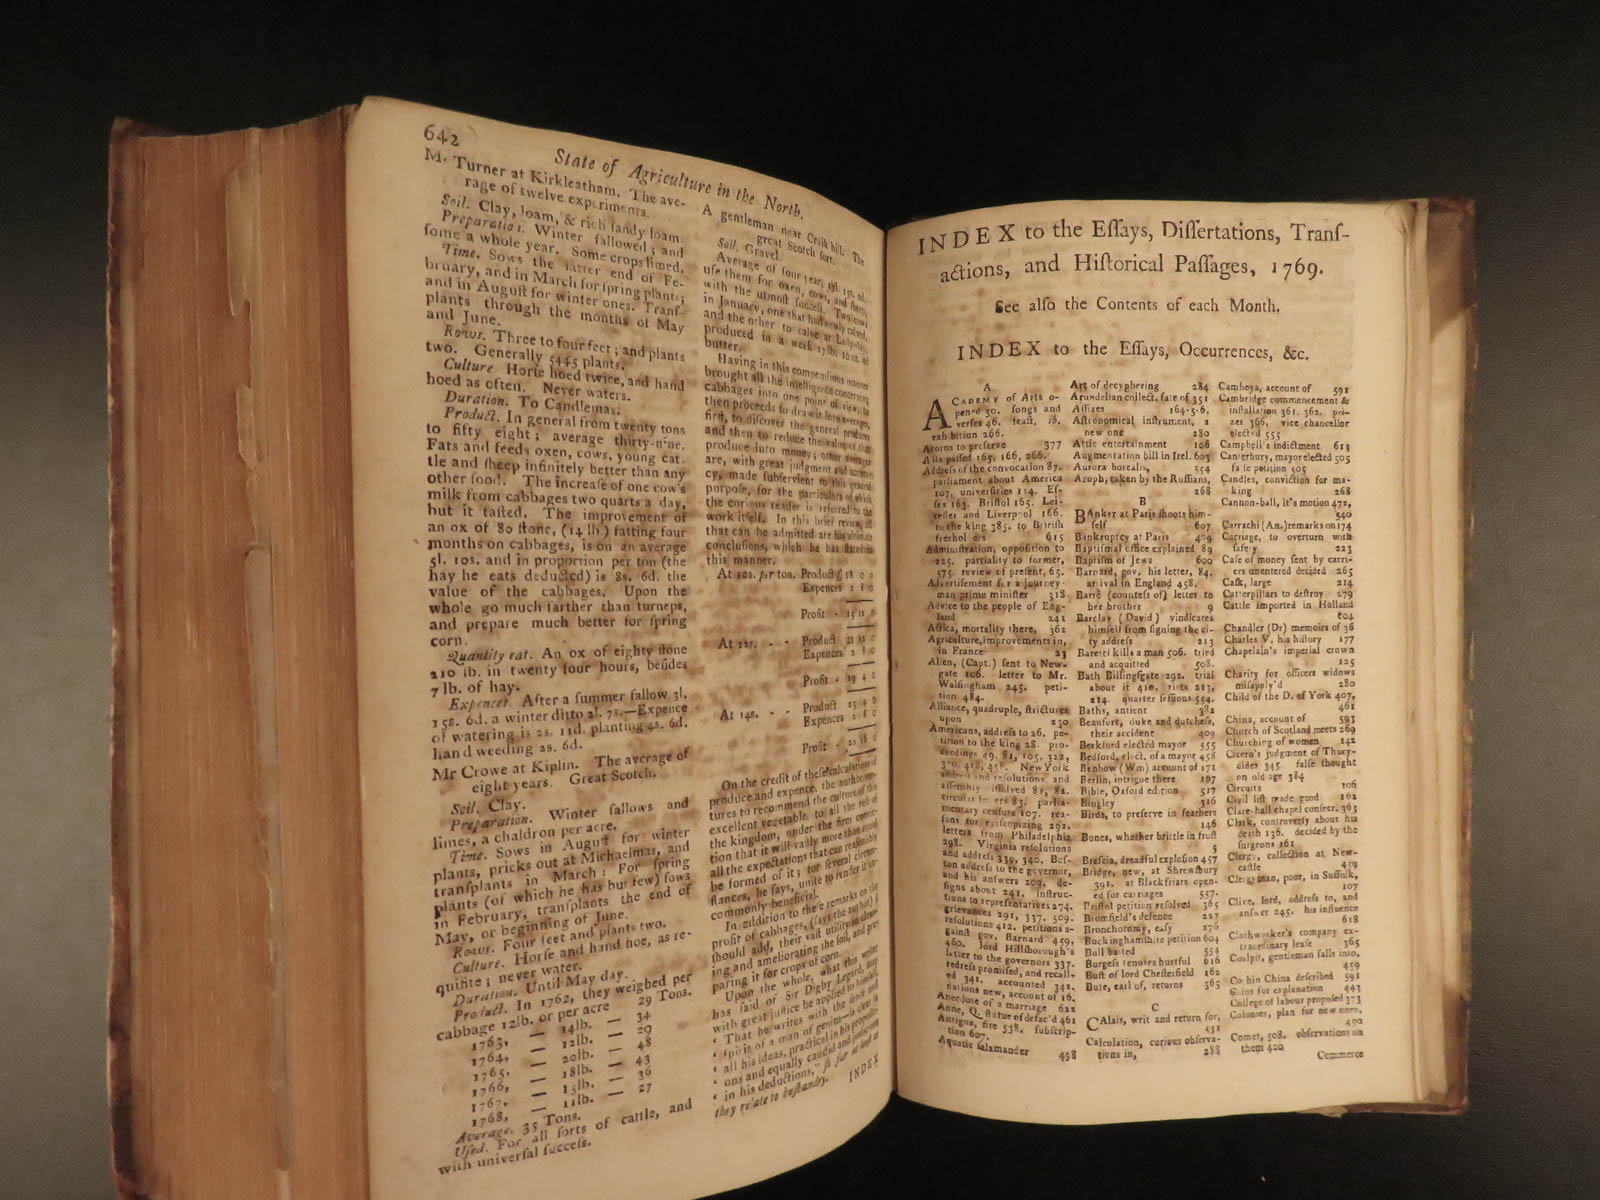 642
State of Agriculture in the North.
M. Turner at Kirkleatham. The ave-
rage of twelve experiments.
Soil. Clay, loam, & rich ſandy loam.
Preparation. Winter fallowed; and
ſome a whole year. Some crops limed.
Time. Sows the latter end of Fe-
bruary, and in March for ſpring plants;
and in Auguſt for winter ones. Tranſ-
plants through the months of May
and June.
Rows. Three to four feet; and plants
two. Generally 5445 plants.
Culture Horſe hoed twice, and hand
hoed as often. Never waters.
Duration. To Candlemas.
Product. In general from twenty tons
to fifty eight; average thirty-nine.
Fats and feeds oxen, cows, young cat-
tle and ſheep infinitely better than any
other food. The increaſe of one cow's
milk from cabbages two quarts a day,
but it taſted. The improvement of
an ox of 80 ſtone, (14 lb.) fatting four
months on cabbages, is on an average
5l. 10s. and in proportion per ton (the
hay he eats deducted) is 8s. 6d. the
value of the cabbages. Upon the
whole go much farther than turneps,
and prepare much better for ſpring
corn.
Quantity eat. An ox of eighty ſtone
210 lb. in twenty four hours, beſides
7 lb. of hay.
Expences. After a ſummer fallow 3l.
15s. 6d. a winter ditto 2l. 7s.—Expence
of watering is 2s. 11d. planting 4s. 6d.
hand weeding 2s. 6d.
Mr Crowe at Kiplin. The average of
eight years. Great Scotch.
Soil. Clay.
Preparation. Winter fallows and
limes, a chaldron per acre.
Time. Sows in Auguſt for winter
plants, pricks out at Michaelmas, and
tranſplants in March: For ſpring
plants (of which he has but few) ſows
in February, tranſplants the end of
May, or beginning of June.
Rows. Four feet and plants two.
Culture. Horſe and hand hoe, as re-
quiſite; never water.
Duration. Until May day.
Product. In 1762, they weighed per
cabbage 12lb. or per acre 29 Tons.
1763, — 14lb. — 34
1764, — 12lb. — 29
1765, — 20lb. — 48
1766, — 18lb. — 43
1767, — 15lb. — 36
1768, — 11lb. — 27
Average. 35 Tons.
Uſed. For all ſorts of cattle, and
with univerſal ſucceſs.
A gentleman near Craikhill. The
great Scotch ſort.
Soil. Gravel.
Average of four year,
uſe them for oxen, cows, and ſheep,
with the utmoſt ſucceſs. Two cows
in January, one that had newly calved,
and the other to calve at Lady-day,
produced in a week 17 lb. 10 oz. of
butter.
Having in this compendious manner
brought all the intelligence concerning
cabbages into one point of view, he
then proceeds to draw it into averages,
firſt, to diſcover the general produce
and then to reduce the value of that
produce into money; other averages
are, with great judgment and accura-
cy, made ſubſervient to this general
purpoſe, for the particulars of which
the curious reader is referred to the
work itſelf. In this brief review, all
that can be admitted are his ultimate
concluſions, which he has ſtated in
this manner.
At 10s. per ton. Product £ 18 0 0
Expences 2 8 0
Profit - 15 12 0
At 12s. - - Product 21 12 0
Expences 2 8 0
Profit - 19 4 0
At 14s. - - Product 25 4 0
Expences 2 8 0
Profit - 22 16 0
On the credit of theſe calculations of
produce and expence, the author ven-
tures to recommend the culture of this
excellent vegetable, to all the reſt of
the kingdom, under the firm convic-
tion that it will vaſtly more than equal
all the expectations that can reaſonably
be formed of it; for ſeveral circum-
ſtances, he ſays, unite to render it un-
commonly beneficial.
In addition to theſe remarks on the
profit of cabbages, (ſays the author) I
ſhould add, their vaſt utility in clean-
ing and ameliorating the ſoil, and pre-
paring it for crops of corn.
Upon the whole, what this writer
has ſaid of Sir Digby Legard, may
with great juſtice be applied to himſelf,
‘ That he writes with the ſenſe and
‘ ſpirit of a man of genius—is clear in
‘ all his ideas, practical in his propoſiti-
‘ ons and equally candid and judicious
‘ in his deductions,’ ſo far at leaſt as
they relate to huſbandry.
INDEX
INDEX to the Eſſays, Diſſertations, Tranſ-
actions, and Hiſtorical Paſſages, 1769.
See alſo the Contents of each Month.
INDEX to the Eſſays, Occurrences, &c.
A
ACADEMY of Arts o-
pen'd 50. ſongs and
verſes 46. feaſt, ib.
exhibition 266.
Acorns to preſerve 377
Acts paſſed 165, 166, 266.
Addreſs of the convocation 87.
parliament about America
107. univerſities 114. Eſ-
ſex 163. Briſtol 165. Lei-
ceſter and Liverpool 166.
to the king 385. to Britiſh
freeholders 615
Adminiſtration, oppoſition to
225. partiality to former,
175. review of preſent, 65.
Advertiſement for a journey-
man prime miniſter 318
Advice to the people of Eng-
land 241
Africa, mortality there, 362
Agriculture, improvements in,
in France 23
Allen, (Capt.) ſent to New-
gate 106. letter to Mr.
Walſingham 245. peti-
tion 484.
Alliance, quadruple, ſtrictures
upon 230
Americans, addreſs to 26. pe-
tition to the king 28. pro-
ceedings 49, 81, 105, 322,
370, 418, 458. New York
addreſs and reſolutions and
aſſembly diſſolved 81, 82.
circular letters 83. parlia-
mentary cenſure 107. rea-
ſons for epiſcopizing 292.
letters from Philadelphia
298. Virginia reſolutions
and addreſs 339, 340. Boſ-
ton addreſs to the governor,
and his anſwers 209. de-
ſigns about 241. Inſtruc-
tions to repreſentatives 274.
grievances 291, 337. 509.
reſolutions 412. petitions a-
gainſt gov. Barnard 459,
460. lord Hillſborough's
letter to the governors 337.
redreſs promiſed, and recall-
ed 341. accounted 342.
nations new, account of 16.
Anecdote of a marriage 622
Anne, Q. ſtatue of defac'd 461
Antigua, fire 538. ſubſcrip-
tion 607.
Aquatic ſalamander 498
Art of decyphering 284
Arundelian collect. fate of 351
Aſſizes 164-5-6.
Aſtronomical inſtrument, a
new one 280
Attic entertainment 106
Augmentation bill in Irel. 603
Aurora borealis, 554
Azoph, taken by the Ruſſians,
268
B
BAnker at Paris ſhoots him-
ſelf 607
Bankruptcy at Paris 409
Baptiſmal office explained 89
Baptiſm of Jews 600
Barnard, gov. his letter, 84.
arrival in England 458.
Barré (counteſs of) letter to
her brother 9
Barclay (David) vindicates
himſelf from ſigning the ci-
ty addreſs 213
Baretti kills a man 506. tried
and acquitted 508.
Bath Billingſgate 292. trial
about it 410. riots 213,
214. quarter ſeſſions 554.
Baths, antient 382
Beaufort, duke and dutcheſs,
their accident 409
Beckford elected mayor 555
Bedford, elect. of a mayor 458
Benbow (Wm) account of 171
Berlin, intrigue there 167
Bible, Oxford edition 517
Bingley 316
Birds, to preſerve in feathers
146
Bones, whether brittle in froſt
5
Breſcia, dreadful exploſion 457
Bridge, new, at Shrewſbury
391. at Blackfriars open-
ed for carriages 557.
Briſtol petition reſolved 365
Bromfield's defence 227
Bronchotomy, eaſy 276
Buckinghamſhire petition 604
Bull baited 554
Burgeſs tenures hurtful 616
Buſt of lord Cheſterfield 162
Bute, earl of, returns 365
C
CAlais, writ and return for,
531
Calculation, curious obſerva-
tions in, 288
Camboya, account of 591
Cambridge commencement &
inſtallation 361. 362. pri-
zes 366, vice chancellor
elected 555
Campbell's indictment 613
Canterbury, mayor elected 505
falſe petition 505
Candles, conviction for ma-
king 268
Cannon-ball, it's motion 472,
540
Carrachi (An.) remarks on 174
Carriage, to overturn with
ſafety 223
Caſe of money ſent by carri-
ers unentered decided 265
Caſk, large 214
Catterpillars to deſtroy 279
Cattle imported in Holland
604
Chandler (Dr) memoirs of 36
Charles V. his hiſtory 177
Chapelain's imperial crown
125
Charity for officers widows
miſapply'd 280
Child of the D. of York 407,
461
China, account of 593
Church of Scotland meets 269
Churching of women 142
Cicero's judgment of Thucy-
dides 345. falſe thought
on old age 384
Circuits 106
Civil liſt made good 162
Clare-hall chapel conſecr. 363
Clark, controverſy about his
death 136. decided by the
ſurgeons 161
Clergy, collection at New-
caſtle 409
Clergyman, poor, in Suffolk,
107
Clive, lord, addreſs to, and
anſwer 245. his influence
618
Clothworker's company ex-
traordinary leaſe 365
Coalpit, gentleman falls into,
459
Cochin China deſcribed 591
Coins for explanation 443
College of labour propoſed 373
Colonies, plan for new ones,
490
Comet, 508. obſervations on
them 420
Commerce